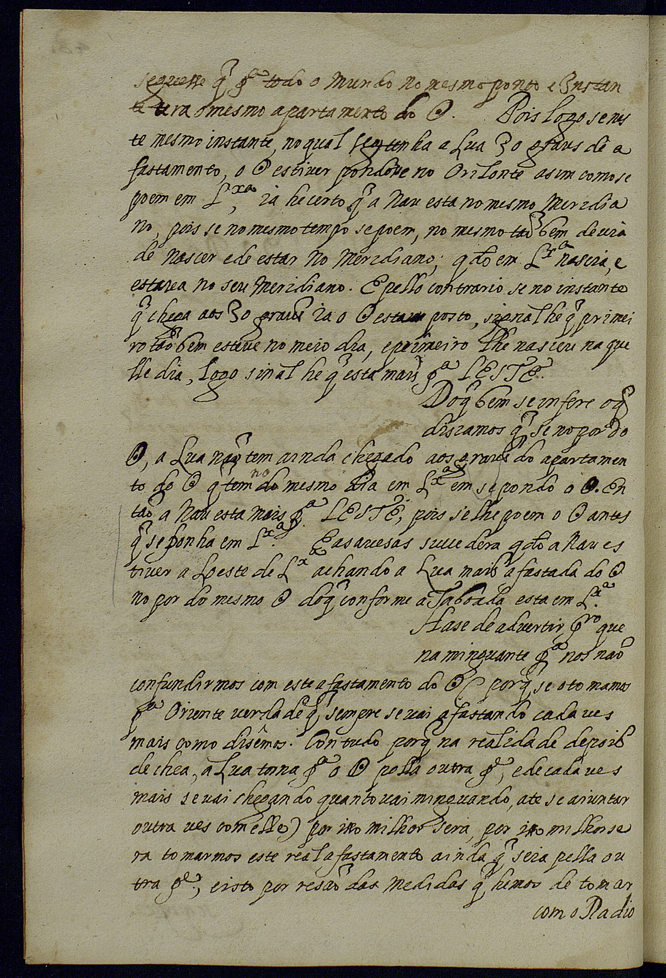 seguesse q̃ pª todo o mundo no mesmo ponto e Instan
te tera o mesmo apartamento do ☉. Pois logo se nes
te mesmo instante, no qual se tenha a Lua 30 graus de a
fastamento, o ☉ estiver pondose no Orisonte asim como se
poem em Lxª, ia he certo q̃ a Nau esta no mesmo Meridia
no, pois se no mesmo tempo se poem, no mesmo tãobem devia
de nascer e de estar no Meridiano; qdo em Lxª nascia, e
estava no seu Meridiano. E pello contrario se no instante
q̃ chega aos 30 graus ia o ☉ estava posto, sinal he q̃ primei
ro tãobem esteve no meio dia, e primeiro lhe nasceu na que
lle dia, logo sinal he q̃ esta mais pª LESTE.
Do q̃ bem se infere o q̃
disiamos q̃ se no por do
☉, a Lua não tem ainda chegado aos graus do apartamen
to do ☉ q̃ tem no mesmo dia em Lxª em se pondo o ☉. En
tão a Nau esta mais pª LESTE, pois se lhe poem o ☉ antes
q̃ se ponha em Lxª. E as avesas sucedera qdo a Nau es
tiver a Loeste de Lxª achando a Lua mais afastada do ☉
no por do mesmo ☉ do q̃ conforme a Taboada esta em Lxª.
Hase de advertir pro que
na minguante pª nos não
confundirmos com este afastamento do ☉ (porq̃ se o tomamos
pª Oriente verdade q̃ sempre se vai afastando cada ves
mais como disemos. Contudo porq̃ na realidade depois
de chea, a Lua torna pª o ☉ polla outra pte, e de cada ves
mais se vai chegando quanto vai minguando, ate se aiuntar
outra ves com elle) por isso milhor sera, por isso milhor se
ra tomarmos este real afastamento ainda q̃ seia pella ou
tra pte, e isto por resão das medidas q̃ hemos de tomar
com o Radio